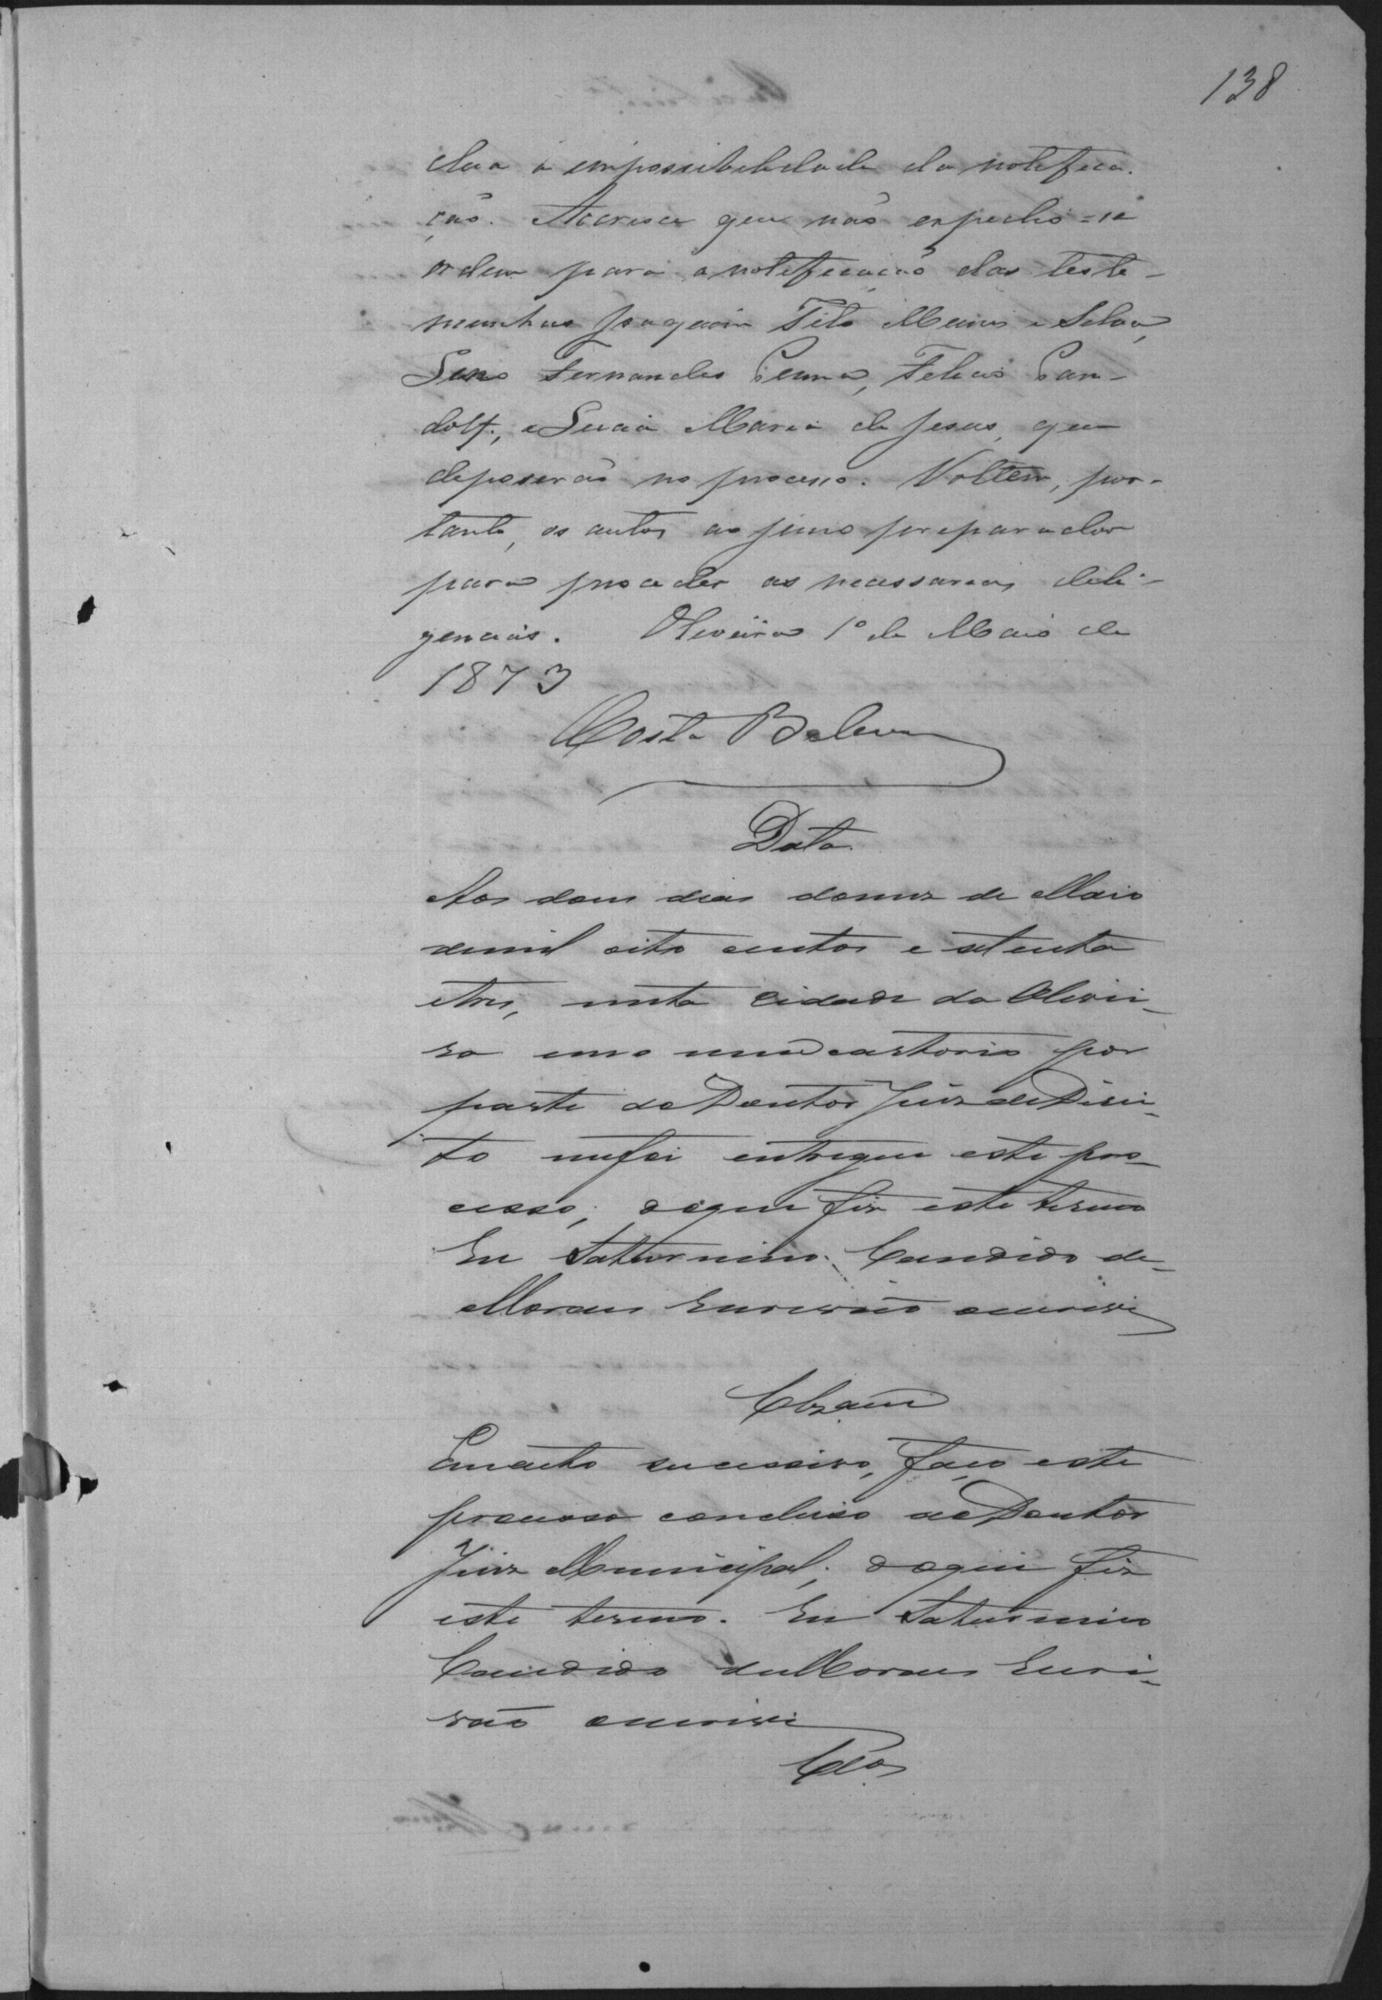 138
a impossibilidade da notifica-
ção. Accresce que não expedio-se
ordem para a notificação das teste-
munhas Joaquim Tito Mains e Silva,
Fernandes Penna, Felicio Gan-
dolf, e Lucia Maria de Jesus, que
depuserão no processo. Voltem, por-
tanto, os autos ao juiso preparador
para proceder as necessarias deli-
gencias. Oliveira 1º de Maio de
1873
Costa Belem
Data
Aos dous dias do mez de Maio
de mil oito centos e setenta
e tres, nesta Cidade da Olivei-
ra em o meu cartorio por
parte do Doutor Juiz de Direi-
to me foi entregue este pro-
cesso; do que fiz este termo
Eu Saturnino Candido de
Moraes Escrivão escrevi
Clzam
Em acto successivo, faço este
processo concluso ao Doutor
Juiz Municipal; do que fiz
este termo. Eu Saturnino
Candido de Moraes Escri-
vão escrevi
Clos